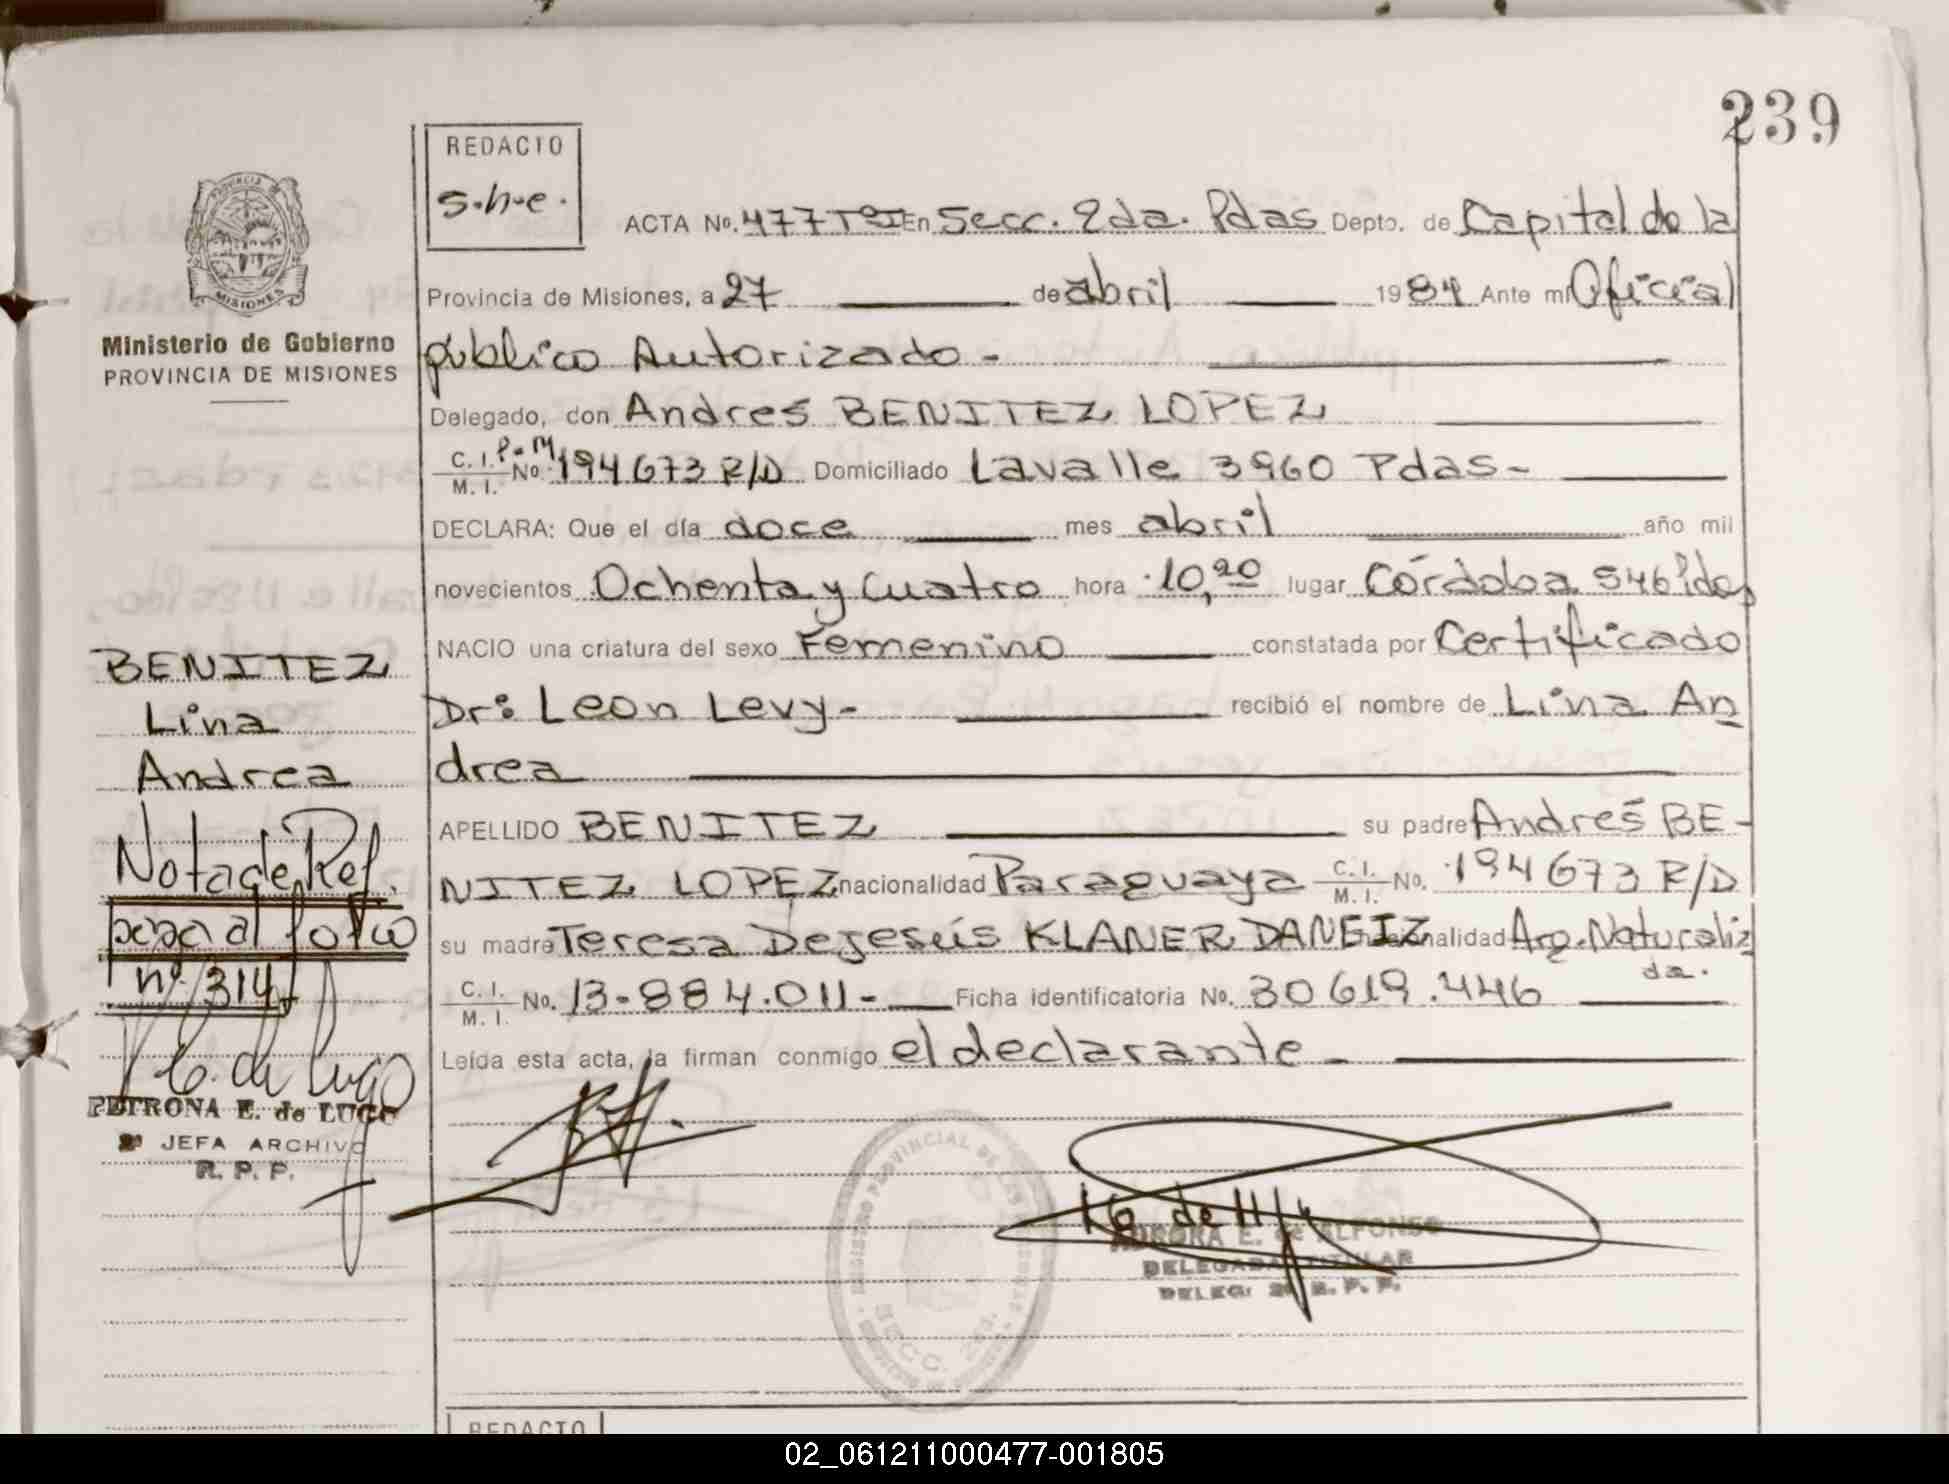 239
REDACTO
s.h.e.
ACTA No. 477 TºI En Secc. 2da. Pdas Depto. de Capital de la
Provincia de Misiones, a 27 de abril 1984 Ante mí Oficial
público Autorizado -
Delegado, don Andres BENITEZ LOPEZ
C. I. P.M.
M. I. No. 194673 R/D Domiciliado Lavalle 3960 Pdas-
DECLARA: Que el día doce mes abril año mil
novecientos Ochenta y Cuatro hora 10,20 lugar Córdoba 546 Pdas
NACIO una criatura del sexo Femenino constatada por Certificado
Dr: Leon Levy- recibió el nombre de Lina An
drea
APELLIDO BENITEZ su padre Andres BE-
NITEZ LOPEZ nacionalidad Paraguaya C. I. M. I. No. 194673 R/D
su madre Teresa Dejesús KLANER nacionalidad Arg. Naturaliz
da.
C. I. M. I. No. 13-884.011- Ficha identificatoria No. 30619.446
Leída esta acta, la firman conmigo el declarante -
PROVINCIA DE
MISIONES
Ministerio de Gobierno
PROVINCIA DE MISIONES
BENITEZ
Lina
Andrea
Nota de Ref.
pasa al folio
nº 314
PETRONA E. de LUGO
2ª JEFA ARCHIVO
R. P. P.
REGISTRO PROVINCIAL DE LAS PERSONAS
SECC. 2da.
E. de ALFONSO
DELEGADA TITULAR
DELEG. 2ª R. P. P.
REDACTO
02_061211000477-001805